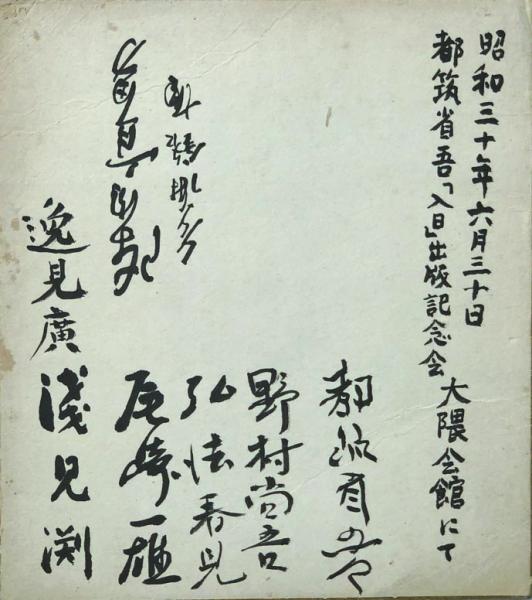 昭和三十年六月三十日
都筑省吾「入日」出版記念会
大隈会館にて
都筑省吾
野村尚吾
弘法春見
尾崎一雄
逸見廣
浅見渕